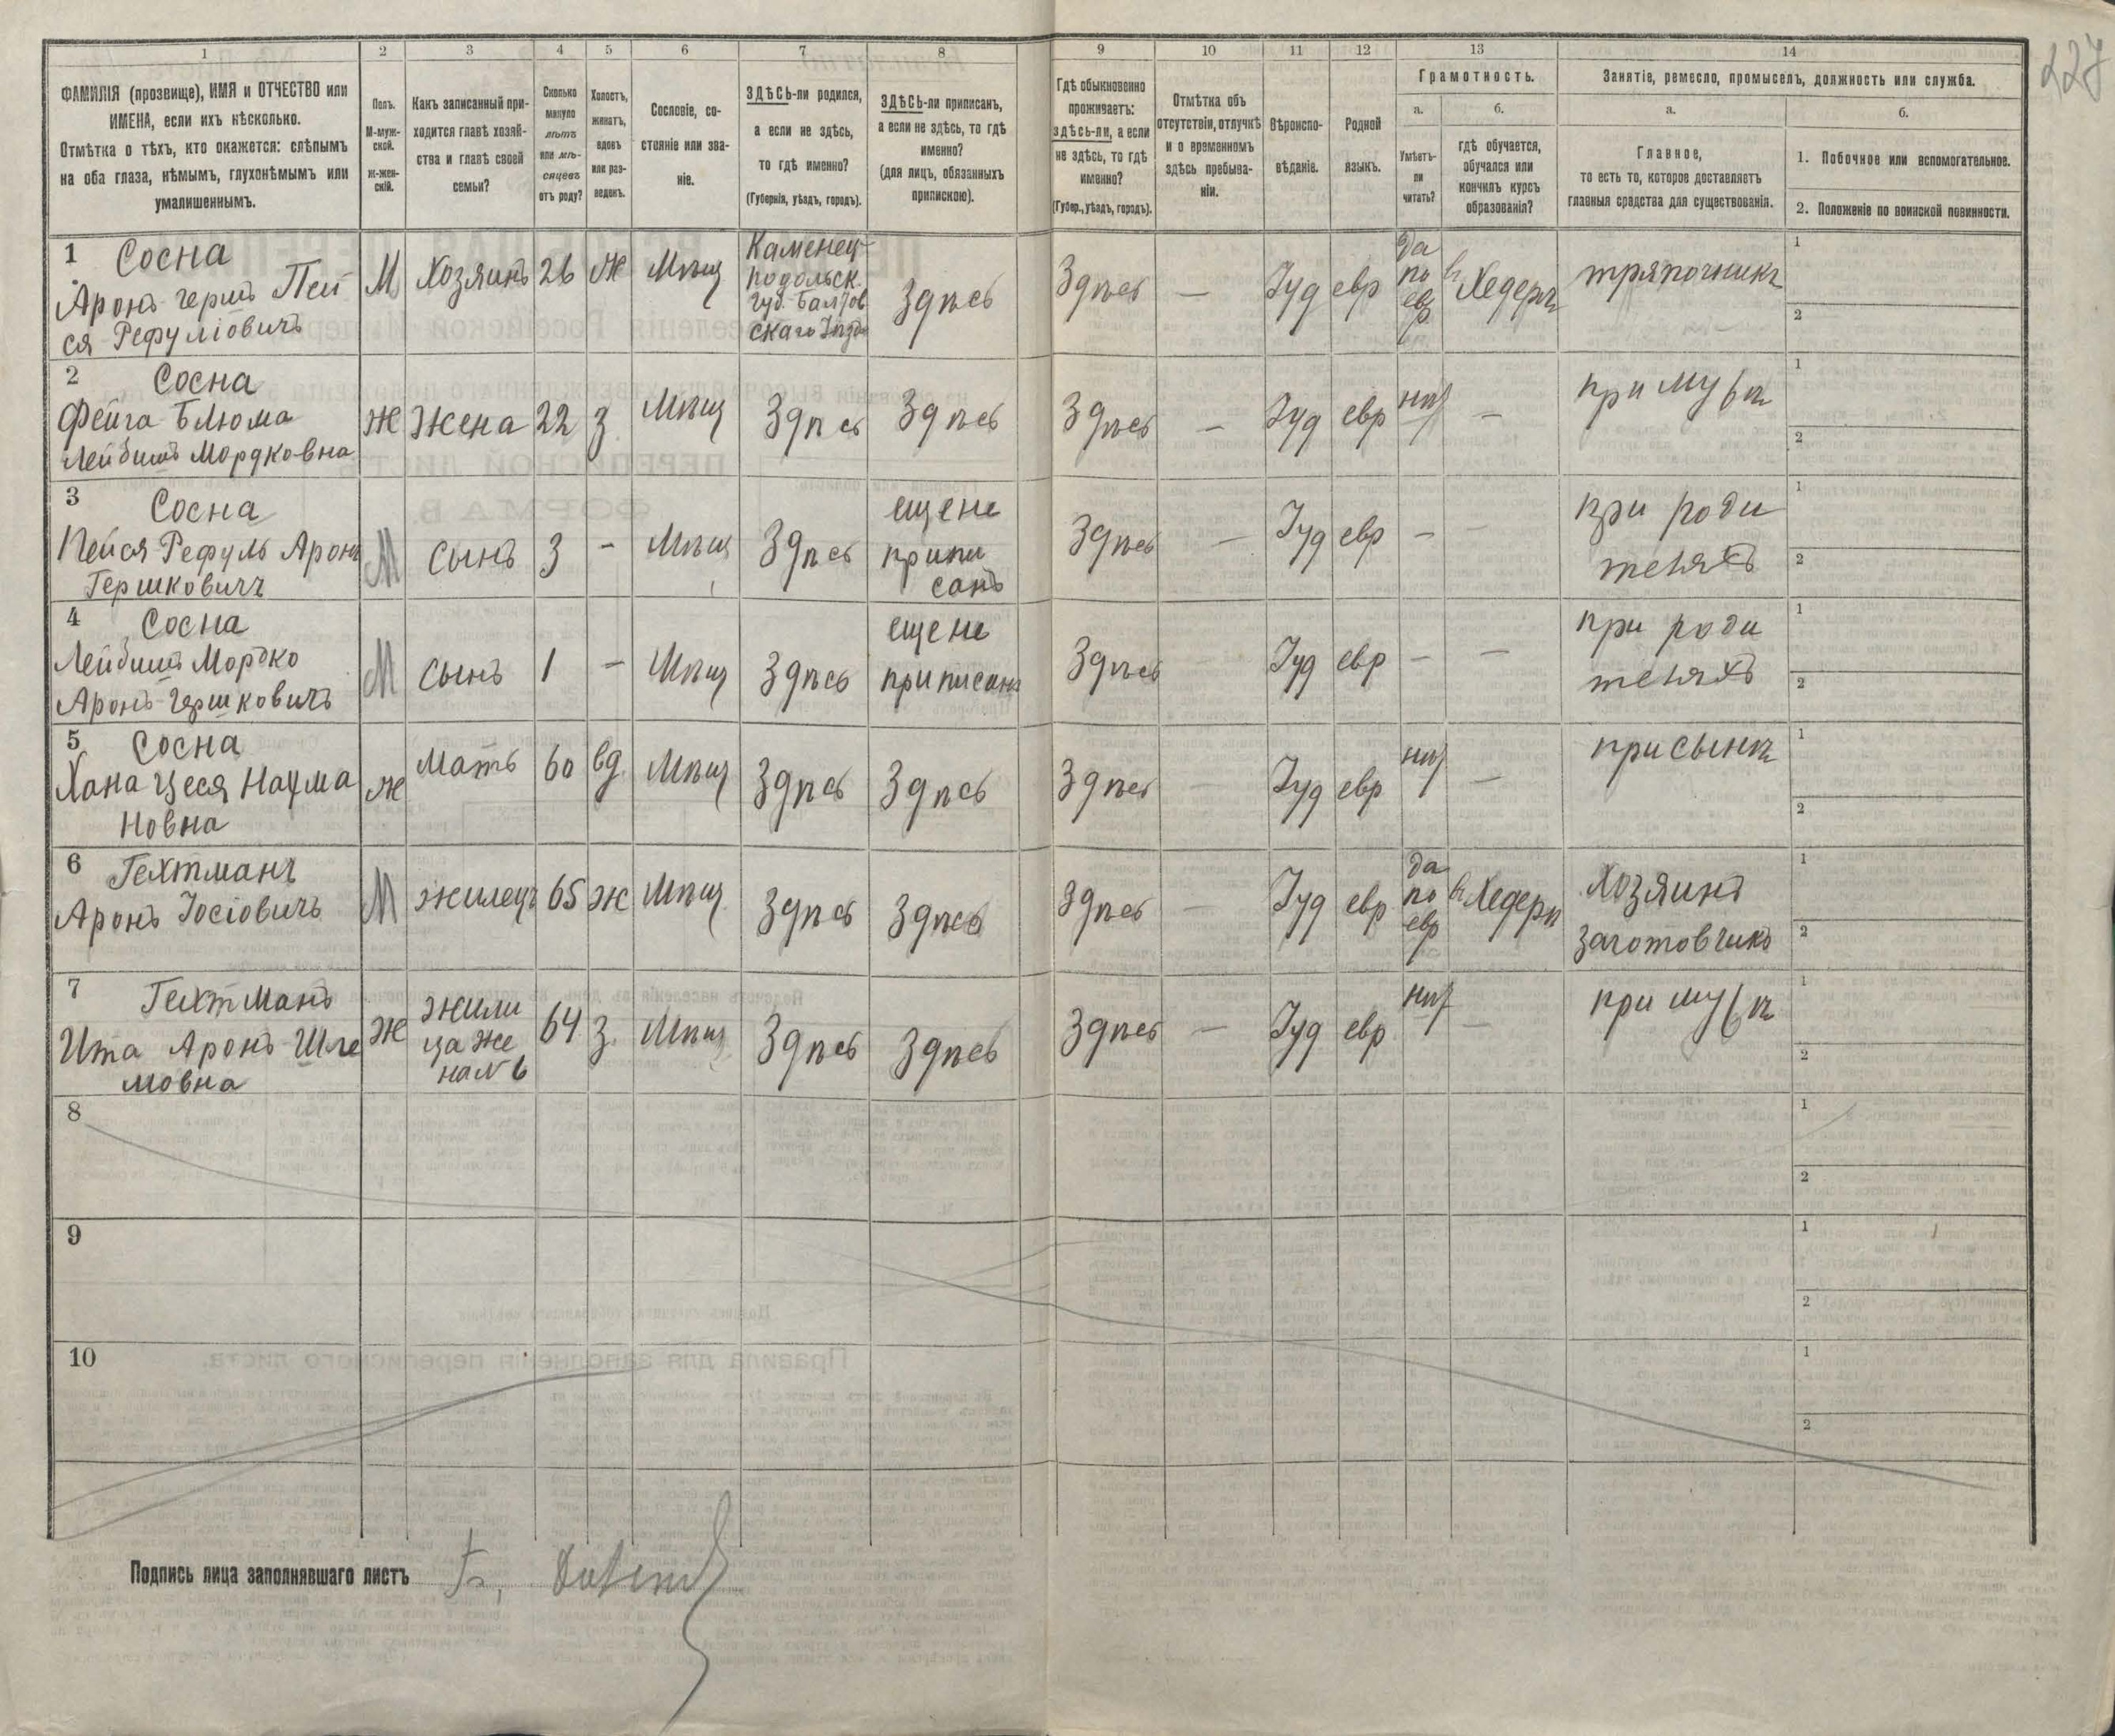 227
1 2 3 4 5 6 7 8 9 10 11 12 13 14
ФАМИЛІЯ (прозвище), ИМЯ и ОТЧЕСТВО или
ИМЕНА, если ихъ нѣсколько.
Отмѣтка о тѣхъ, кто окажется: слѣпымъ
на оба глаза, нѣмымъ, глухонѣмымъ или
умалишеннымъ.
Полъ.
М-муж-
ской.
Ж-жен-
скій.
Какъ записанный при-
ходится главѣ хозяй-
ства и главѣ своей
семьи?
Сколько
минуло
лѣтъ
или мѣ-
сяцевъ
отъ роду?
Холостъ,
женатъ,
вдовъ
или раз-
веденъ.
Сословіе, со-
стояніе или зва-
ніе.
ЗДѢСЬ-ли родился,
а если не здѣсь,
то гдѣ именно?
(Губернія, уѣздъ, городъ).
ЗДѢСЬ-ли приписанъ,
а если не здѣсь, то гдѣ
именно?
(для лицъ, обязанныхъ
припискою).
Гдѣ обыкновенно
проживаетъ:
здѣсь-ли, а если
не здѣсь, то гдѣ
именно?
(Губер., уѣздъ, городъ).
Отмѣтка объ
отсутствіи, отлучкѣ
и о временномъ
здѣсь пребыва-
ніи.
Вѣроиспо-
вѣданіе.
Родной
языкъ.
Грамотность.
а.
Умѣетъ-
ли
читать?
б.
гдѣ обучается,
обучался или
кончилъ курсъ
образованія?
Занятіе, ремесло, промыселъ, должность или служба.
а.
Главное,
то есть то, которое доставляетъ
главныя средства для существованія.
б.
1. Побочное или вспомогательное.
2. Положеніе по воинской повинности.
1 Сосна
Аронъ Гершъ Пей
ся Рефуліовичъ
М
Хозяинъ
26
Ж
Мѣщ
Каменец-
Подольск.
губ. Балтов
скаго Уѣзда
Здѣсь
Здѣсь
—
Іуд
евр
да
по
евр
въ Хедерѣ
тряпочникъ
1
2
2 Сосна
Фейга Блюма
Лейбишъ Мордковна
Ж
Жена
22
З.
Мѣщ
Здѣсь
Здѣсь
Здѣсь
—
Іуд
евр
нѣт
—
при мужѣ
1
2
3 Сосна
Пейся Рефуль Аронъ
Гершковичъ
М
Сынъ
3
-
Мѣщ
Здѣсь
еще не
припи
санъ
Здѣсь
—
Іуд
евр
-
-
при роди
теляхъ
1
2
4 Сосна
Лейбишъ Мордко
Аронъ-Гершковичъ
М
Сынъ
1
-
Мѣщ
Здѣсь
еще не
приписанъ
Здѣсь
-
Іуд
евр
-
-
при роди
теляхъ
1
2
5 Сосна
Хана Цеся Наума
новна
Ж
Мать
60
вд.
Мѣщ
Здѣсь
Здѣсь
Здѣсь
-
Іуд
евр
нѣт
—
при сынѣ
1
2
6 Гехтманъ
Аронъ Іосіовичъ
М
жилецъ
65
Ж
Мѣщ
Здѣсь
Здѣсь
Здѣсь
—
Іуд
евр
да
по
евр
въ Хедерѣ
Хозяинъ
заготовчикъ
1
2
7 Гехтманъ
Ита Аронъ-Шле
мовна
Ж
жили
ца же
на № 6
64
З.
Мѣщ
Здѣсь
Здѣсь
Здѣсь
—
Іуд
евр
нѣт
—
при мужѣ
1
2
8
1
2
9
1
2
10
1
2
Подпись лица заполнявшаго листъ